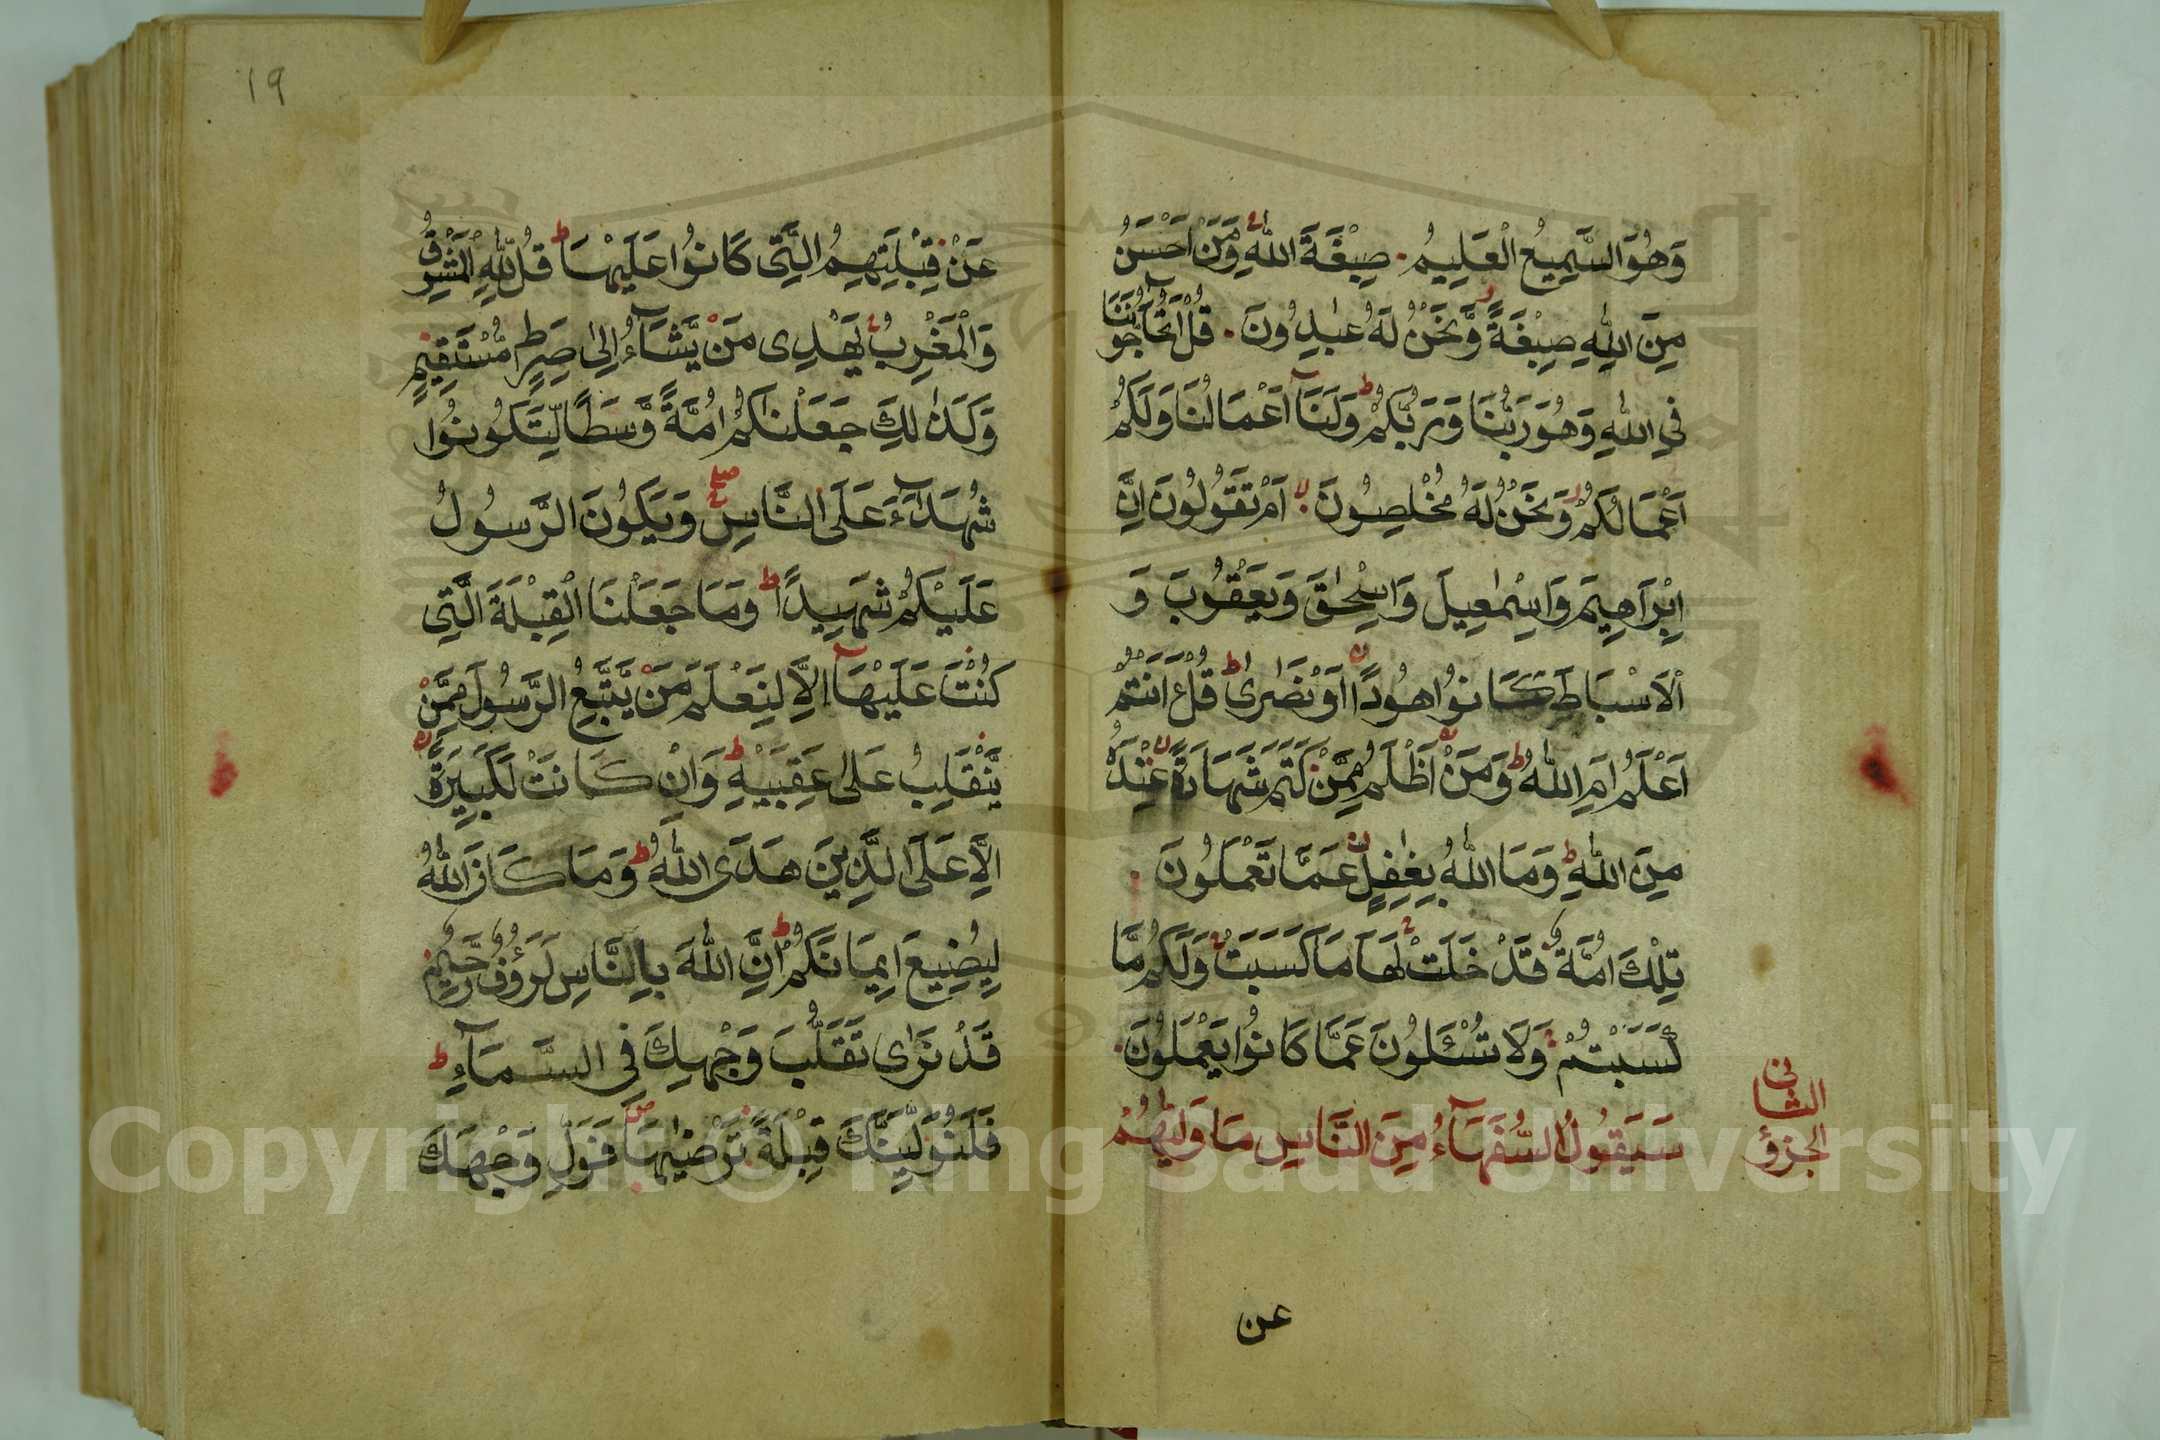 وَهُوَ السَّمِيعُ الْعَلِيمُ صِبْغَةَ اللّٰهِ وَمَنْ اَحْسَنُ
مِنَ اللّٰهِ صِبْغَةً وَّنَحْنُ لَهُ عٰبِدُونَ قُلْ اَتُحَآجُّونَنَا
فِي اللّٰهِ وَهُوَ رَبُّنَا وَرَبُّكُمْ وَلَنَآ اَعْمَالُنَا وَلَكُمْ
اَعْمَالُكُمْ وَنَحْنُ لَهُ مُخْلِصُونَ اَمْ تَقُولُونَ اِنَّ
اِبْرَاهِيمَ وَاِسْمٰعِيلَ وَاِسْحٰقَ وَيَعْقُوبَ وَ
الْاَسْبَاطَ كَانُوا هُودًا اَوْ نَصٰرىٰ قُلْ ءَاَنْتُمْ
اَعْلَمُ اَمِ اللّٰهُ وَمَنْ اَظْلَمُ مِمَّنْ كَتَمَ شَهَادَةً عِنْدَهُ
مِنَ اللّٰهِ وَمَا اللّٰهُ بِغٰفِلٍ عَمَّا تَعْمَلُونَ
تِلْكَ اُمَّةٌ قَدْ خَلَتْ لَهَا مَا كَسَبَتْ وَلَكُمْ مَّا
كَسَبْتُمْ وَلَا تُسْئَلُونَ عَمَّا كَانُوا يَعْمَلُونَ
سَيَقُولُ السُّفَهَآءُ مِنَ النَّاسِ مَا وَلّٰيهُمْ
الجزؤ
الثانى
عن
١٩
عَنْ قِبْلَتِهِمُ الَّتِى كَانُوا عَلَيْهَا قُلْ لِّلّٰهِ الْمَشْرِقُ
وَالْمَغْرِبُ يَهْدِى مَنْ يَّشَآءُ اِلىٰ صِرٰطٍ مُّسْتَقِيمٍ
وَكَذٰلِكَ جَعَلْنٰكُمْ اُمَّةً وَّسَطًا لِّتَكُونُوا
شُهَدَآءَ عَلَى النَّاسِ وَيَكُونَ الرَّسُولُ
عَلَيْكُمْ شَهِيدًا وَمَا جَعَلْنَا الْقِبْلَةَ الَّتِى
كُنْتَ عَلَيْهَآ اِلَّا لِنَعْلَمَ مَنْ يَّتَّبِعُ الرَّسُولَ مِمَّنْ
يَّنْقَلِبُ عَلىٰ عَقِبَيْهِ وَاِنْ كَانَتْ لَكَبِيرَةً
اِلَّا عَلَى الَّذِينَ هَدَى اللّٰهُ وَمَا كَانَ اللّٰهُ
لِيُضِيعَ اِيمَانَكُمْ اِنَّ اللّٰهَ بِالنَّاسِ لَرَؤُفٌ رَّحِيمٌ
قَدْ نَرٰى تَقَلُّبَ وَجْهِكَ فِى السَّمَآءِ
فَلَنُوَلِّيَنَّكَ قِبْلَةً تَرْضٰيهَا فَوَلِّ وَجْهَكَ
Copyright © King Saud University